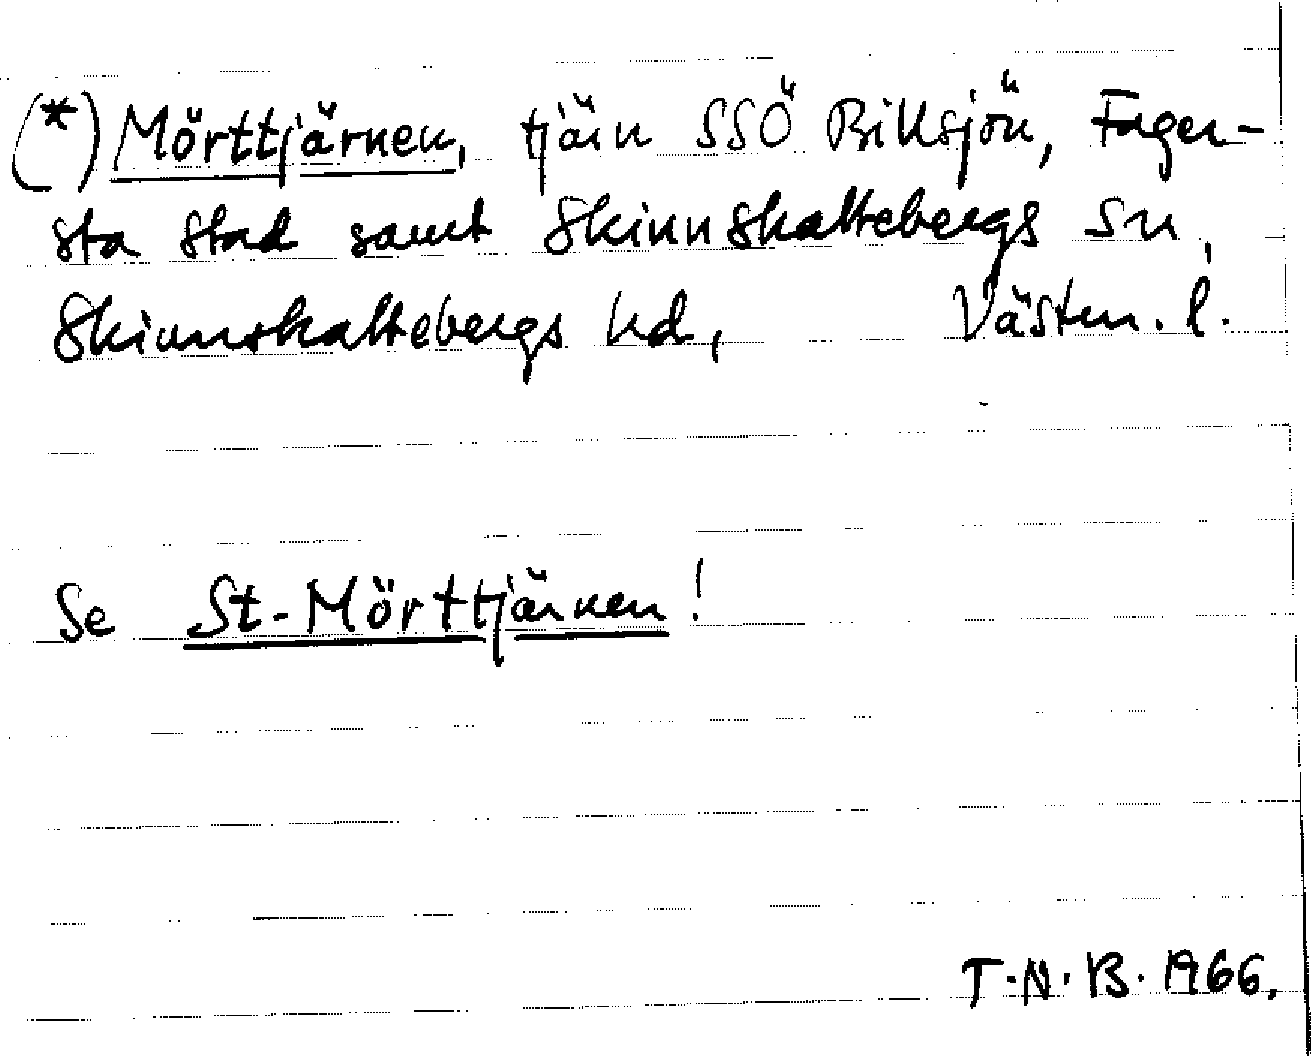 (*) Mörttjärnen, tjärn SSÖ Billsjön, Fager-
sta stad samt Skinnskattebergs sn,
Skinnskattebergs hd, Västm. l.
Se St-Mörttjärnen!
T.N.B. 1966.